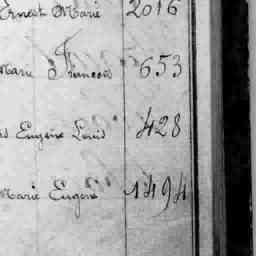 Ernest Marie 2016
Marie François 653
Eugène Louis 428
Marie Eugène 1494